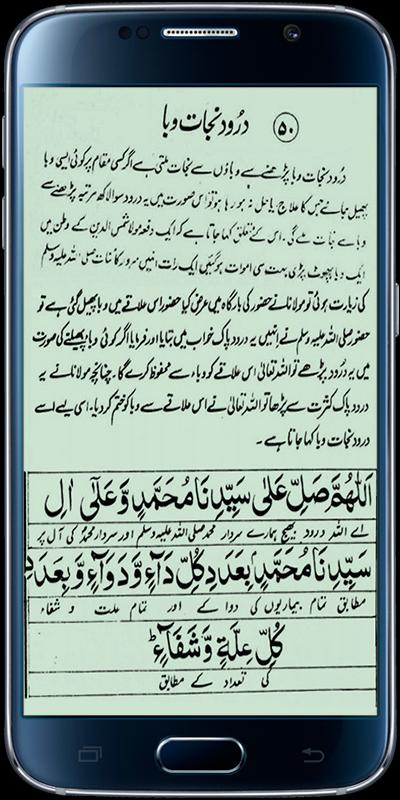 ۵۰ درود نجات وبا
درود نجات وبا پڑھنے سے وباؤں سے نجات ملتی ہے اگر کسی مقام پر کوئی ایسی وبا
پھیل جائے جس کا علاج یا حل نہ ہو رہا ہو تو اس صورت میں یہ درود سوا لاکھ مرتبہ پڑھنے سے
وبا سے نجات ملے گی۔ اس کے متعلق کہا جاتا ہے کہ ایک دفعہ مولانا شمس الدین کے وطن میں
ایک وبا پھوٹ پڑی بہت سی اموات ہو گئیں ایک رات انہیں سرور کائنات صلی اللہ علیہ وسلم
کی زیارت ہوئی تو مولانا نے حضور کی بارگاہ میں عرض کیا حضور اس علاقے میں وبا پھیل گئی ہے تو
حضور صلی اللہ علیہ وسلم نے انہیں یہ درود پاک خواب میں بتایا اور فرمایا اگر کوئی وبا پھیلنے کی صورت
میں یہ درود پڑھے تو اللہ تعالیٰ اس علاقے کو وباء سے محفوظ کرے گا۔ چنانچہ مولانا نے یہ
درود پاک کثرت سے پڑھا تو اللہ تعالیٰ نے اس علاقے سے وبا کو ختم کر دیا۔ اسی لیے اسے
درود نجات وبا کہا جاتا ہے۔
اَللّٰهُمَّ صَلِّ عَلٰی سَیِّدِنَا مُحَمَّدٍ وَّعَلٰٓی اٰلِ
اے اللہ درود بھیج ہمارے سردار محمد صلی اللہ علیہ وسلم اور سردار محمدؐ کی آل پر
سَیِّدِنَا مُحَمَّدٍۢ بِعَدَدِ كُلِّ دَآءٍ وَّدَوَآءٍ وَّبِعَدَدِ
مطابق تمام بیماریوں کی دوا کے اور تمام علت و شفاء
كُلِّ عِلَّةٍ وَّشَفَآءٍؕ
کی تعداد کے مطابق